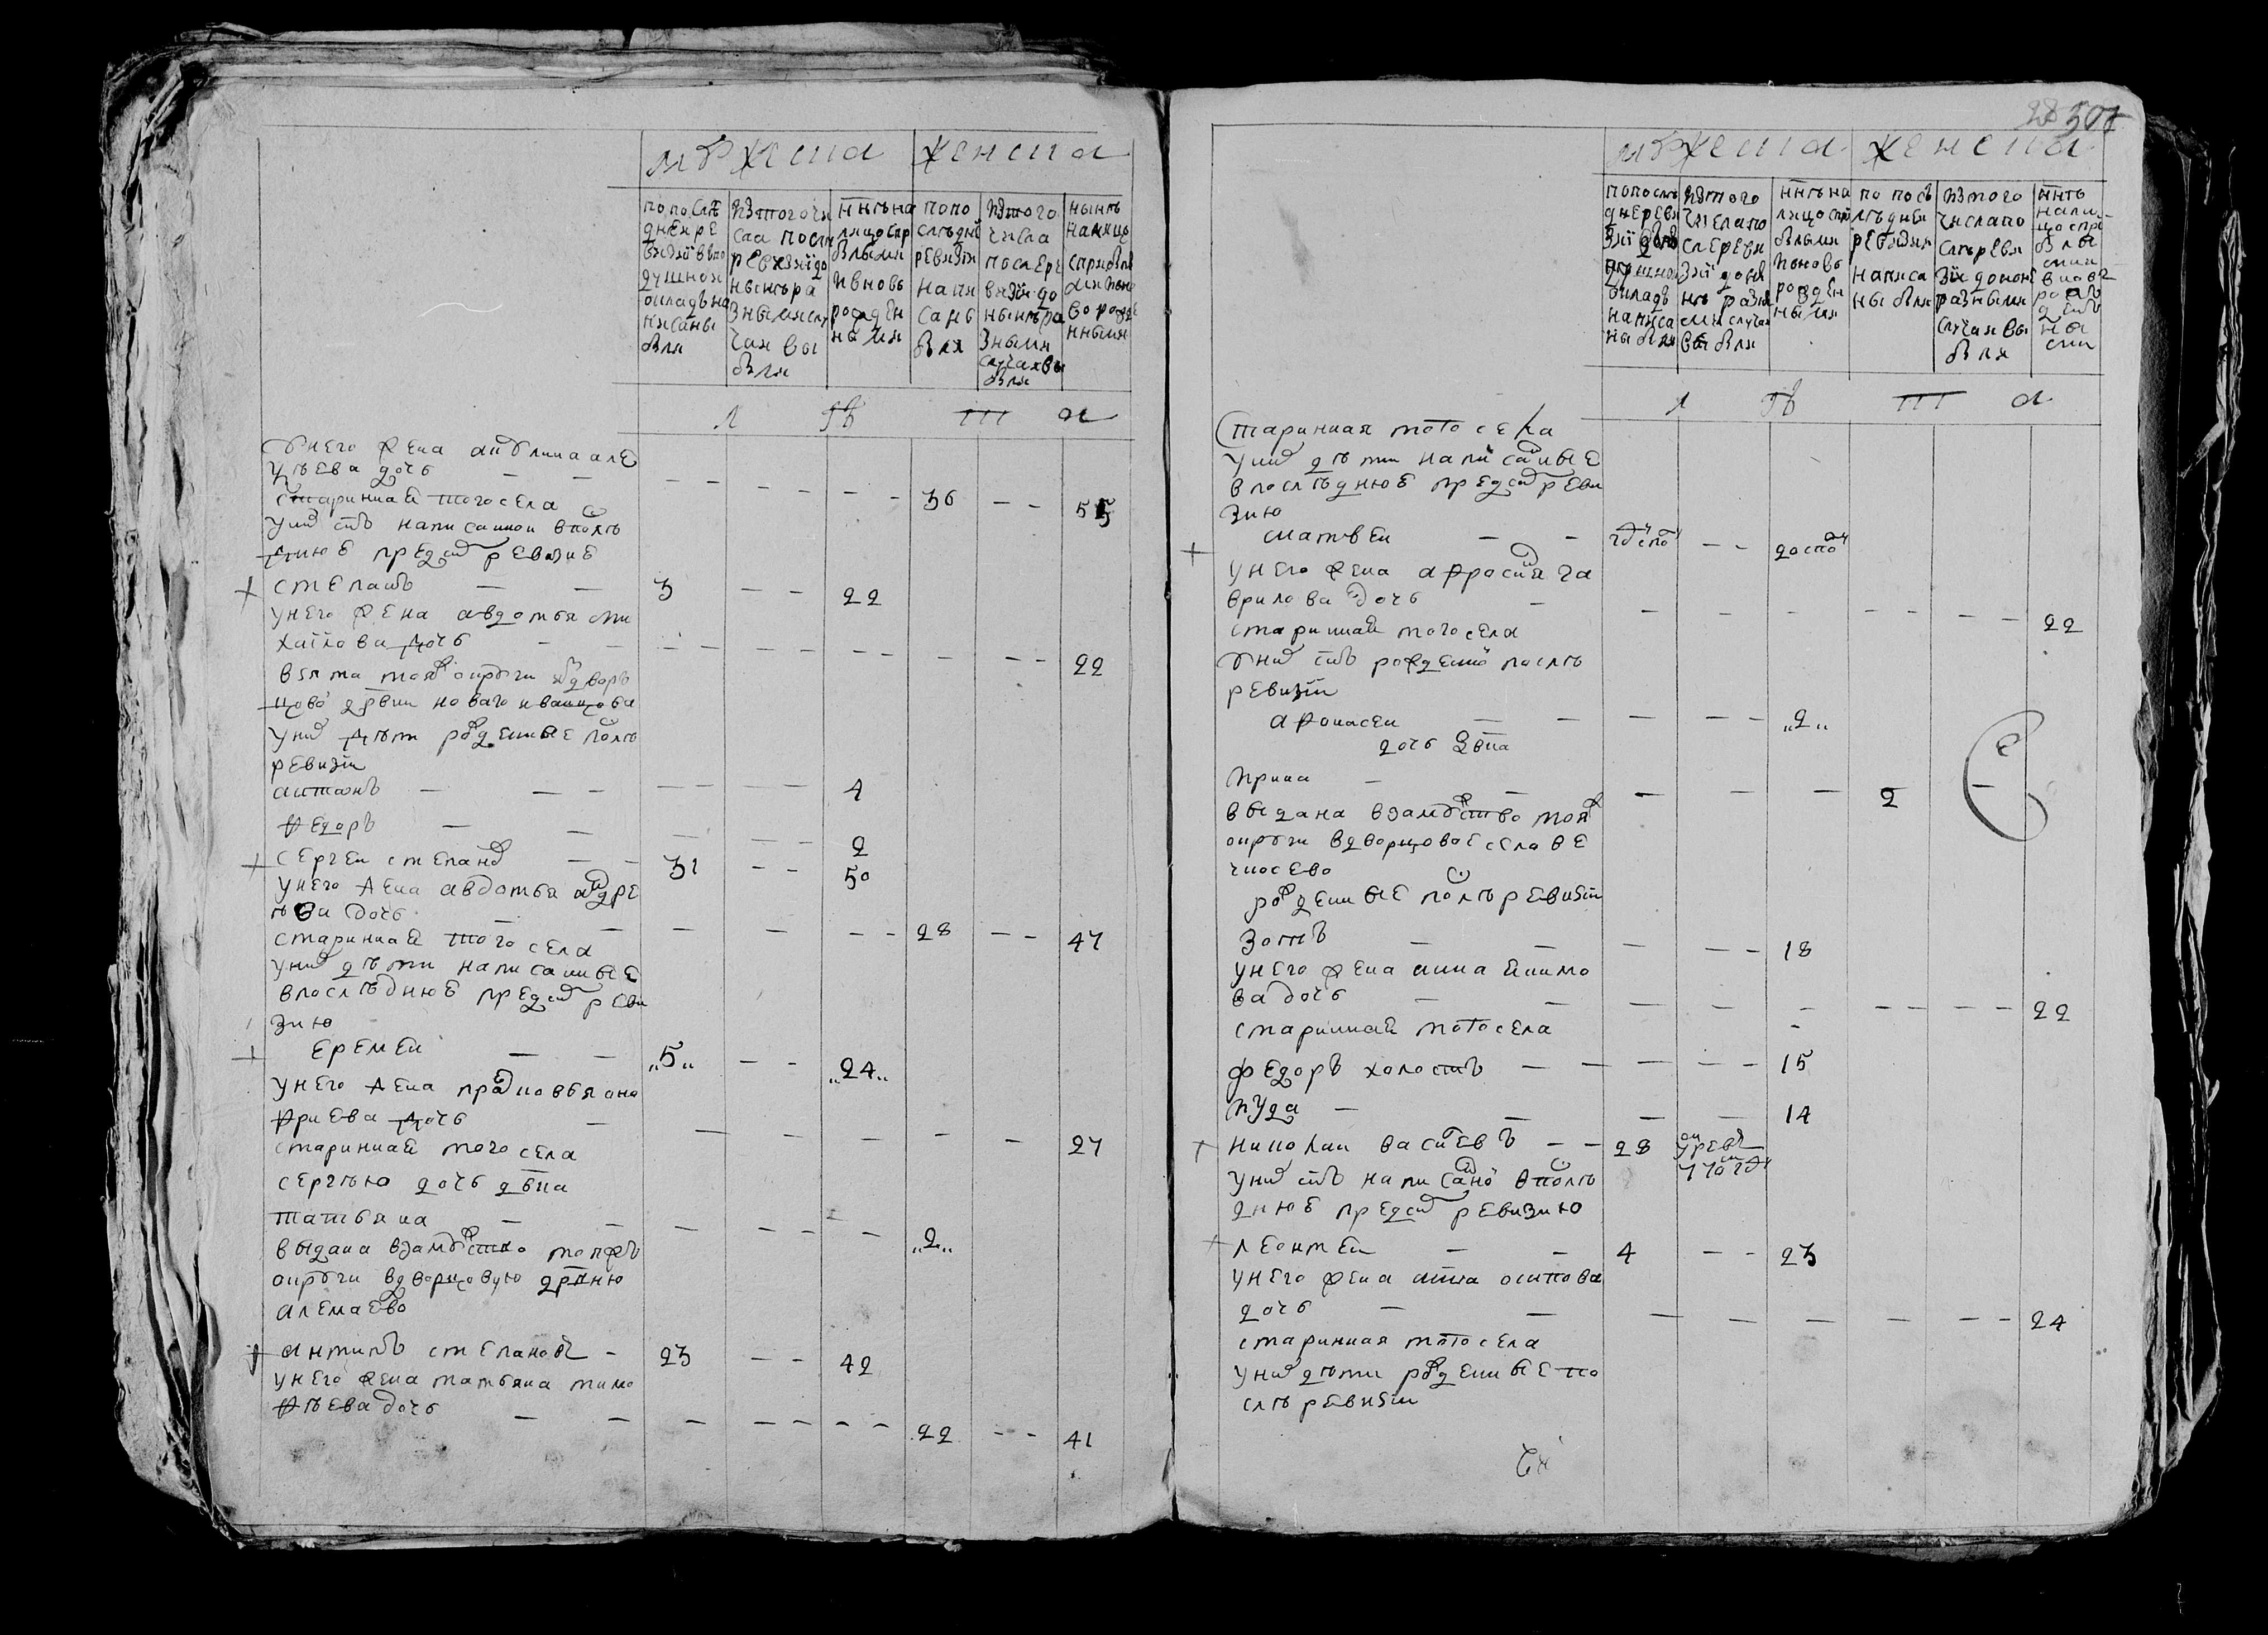 мужеска женска
по послѣ
дней ре
визіи в по
душной
окладъ на
писаны
были
изтого чи
сла после
ревизіи до
нынѣ ра
зными слу
чаи вы
были
ннѣ на
лицо с при
былыми
и вновь
рожден
ными
попо
слѣдней
ревизіи
напи
саны
были
изтого
числа
после ре
визіи до
нынѣ ра
зными
случаи вы
были
нынѣ
на лицо
с прибы
лыми и вно
во рожде
нными
л ѣ т а
у него жена акулина але
ѣева дочь — —
36 — — 55
стариннаѧ того села
у них снъ написанной в послѣ
днюю пред сим ревизию
степанъ — — 3 — — 22
у него жена авдотья ми
хаилова дочь — — 22
взята той же округи из дворъ
цовой дрвни новаго иванцова
у них дѣти рожденные послѣ
ревизіи
антонъ — — — 4
федоръ — — — 2
сергеи степановъ — — 31 — — 50
у него жена авдотья андре
ѣва дочь — — 28 — — 47
стариннаѧ того села
у них дѣти написанные
в послѣднюю пред сим реви
зию
еремеи — — „5„ — — „24„
у него жена прасковья ано
фриева дочь — — 27
стариннаѧ того села
сергѣю дочь двка
татьяна — — „2„
выдана взамужство той же
округи в дворцовую дрвню
алемаево
антипъ степановъ — 23 — — 42
у него жена татьяна тимо
фѣева дочь — — 22 — — 41
501
мужеска женска
по послѣ
дней реви
зіи в по
душной
окладъ
написа
ны были
изтого
числа по
сле реви
зіи до ны
нѣ разны
ми случаи
выбыли
ннѣ на
лицо с при
былыми
и новъ
рожден
ными
по пос
лѣдней
ревизии
написа
ны были
изтого
числа по
слѣ реви
зіи до нынѣ
разными
случаи вы
были
ннѣ
нали
цо с при
былы
ми и
вновь
рож
ден
ны
ми
л ѣ т а
старинная того села
у них дѣти написанные
в послѣднюю пред сим реви
зию
матвеи — —
у него жена афросинья га
врилова дочь — — 22
стариннаѧ того села
у них снъ рожденной послѣ
ревизіи
афонасеи — — — — „2„
дочь двка
ирина — — — — 2 —
выдана взамужство той же
округи в дворцовое село ве
чкосево
рожденные послѣ ревизіи
зотъ — — — — 18
у него жена анна екимо
ва дочь — — 22
стариннаѧ того села
федоръ холостъ — — — — 15
иуда — — — — 14
николаи васильевъ — — 28
у них снъ написанной в послѣ
днюю пред сим ревизию
леонтеи — — 4 — — 23
у него жена анна осипова
дочь — — 24
старинная того села
у них дѣти рожденные по
слѣ ревизіи